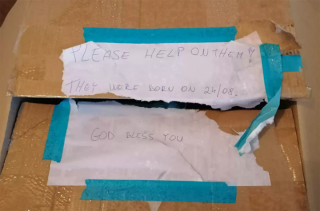 PLEASE HELP ON THEM!
THEY WERE BORN ON 24/08.
GOD BLESS YOU